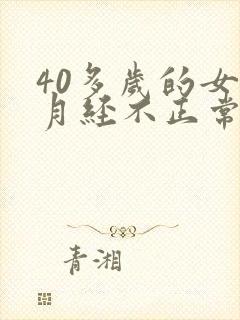 40多歲的女
月經不正常
青湘